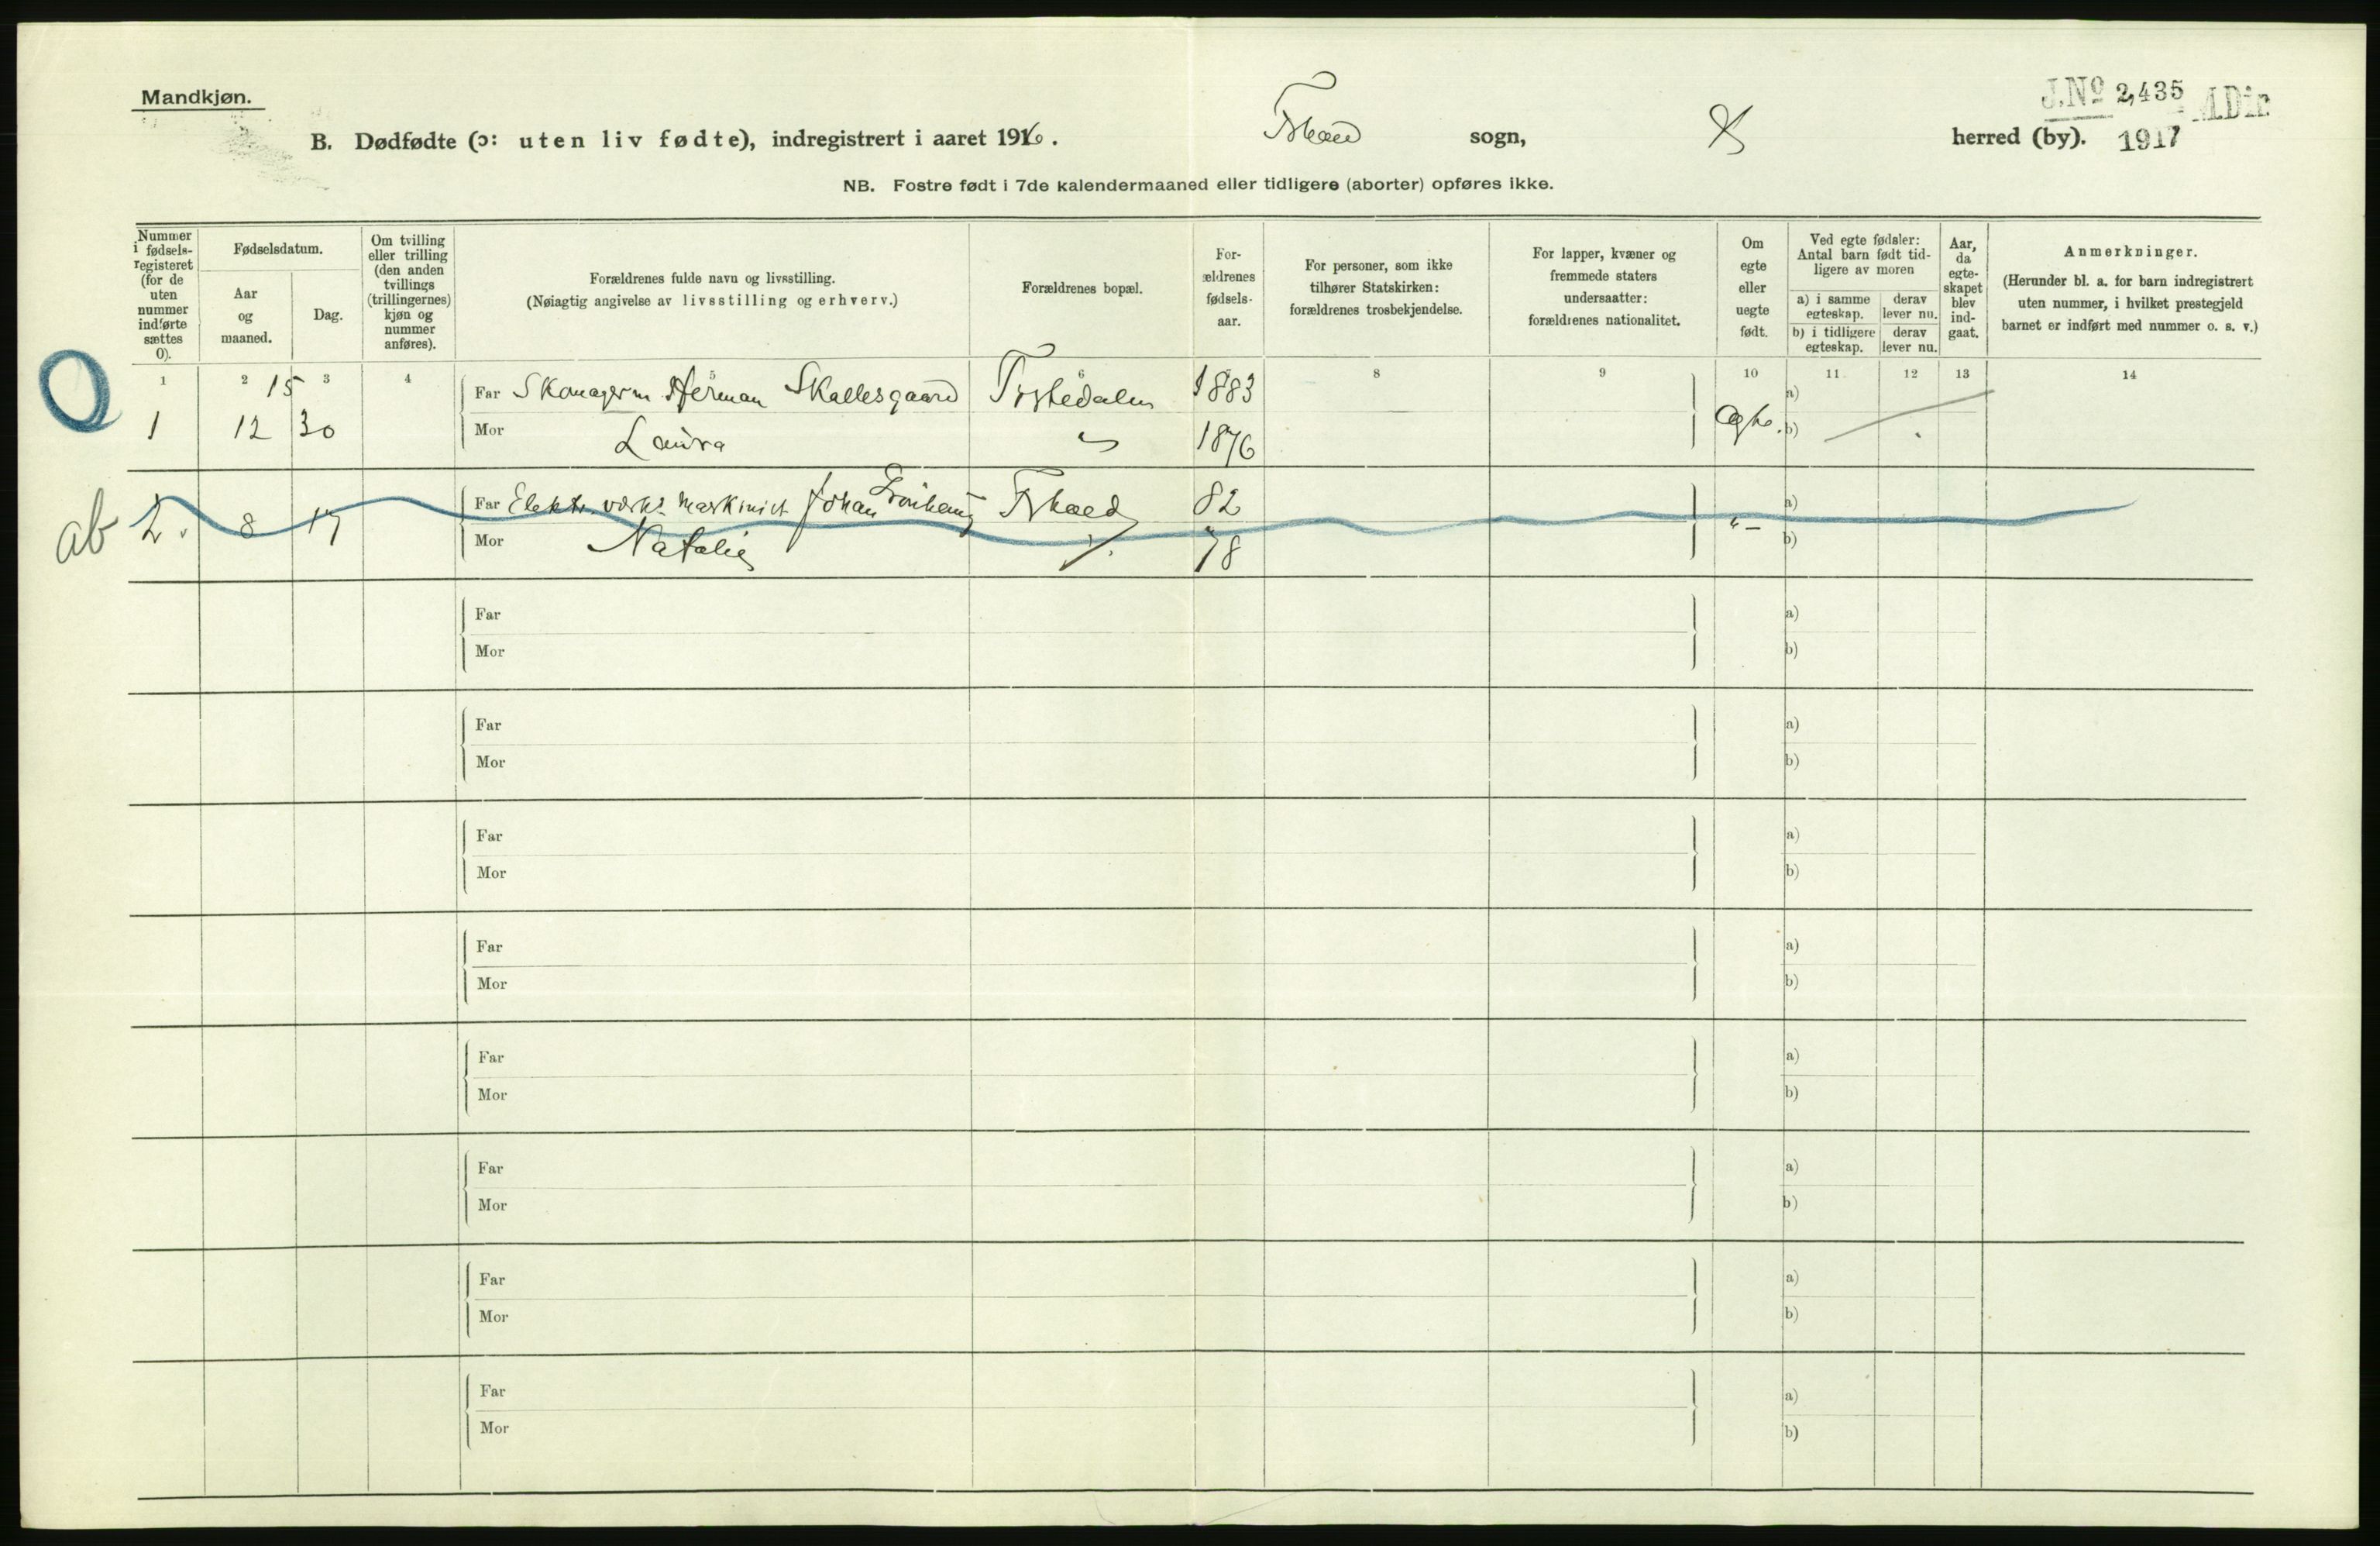 Mandkjøn.
J.No 2,435 M.Dir
1917
B. Dødfødte (ɔ: uten liv fødte), indregistrert i aaret 1916. sogn, herred (by).
NB. Fostre født i 7de kalendermaaned eller tidligere (aborter) opføres ikke.
Nummer i fødsels-registeret (for de uten nummer indførte sættes 0).
Fødselsdatum.
Aar og maaned.
Dag.
Om tvilling eller trilling (den anden tvillings (trillingernes) kjøn og nummer anføres).
Forældrenes fulde navn og livsstilling.
(Nøiagtig angivelse av livsstilling og erhverv.)
Forældrenes bopæl.
For-ældrenes fødsels-aar.
For personer, som ikke tilhører Statskirken: forældrenes trosbekjendelse.
For lapper, kvæner og fremmede staters undersaatter: forældrenes nationalitet.
Om egte eller uegte født.
Ved egte fødsler: Antal barn født tid-ligere av moren
a) i samme egteskap.
derav lever nu.
b) i tidligere egteskap.
derav lever nu.
Aar, da egte-skapet blev ind-gaat.
Anmerkninger.
(Herunder bl. a. for barn indregistrert uten nummer, i hvilket prestegjeld barnet er indført med nummer o. s. v.)
1 2 3 4 5 6 8 9 10 11 12 13 14
15
Far Skomagerm Herman Skallesgaard Tistedalen 1883 a)
1 12 30 Mor Laura 1876 Egte. b)
ab 2. 8 17 Far Elektr. værks maskinist Johan 82 "- a)
Mor Natalie 78 b)
Far a)
Mor b)
Far a)
Mor b)
Far a)
Mor b)
Far a)
Mor b)
Far a)
Mor b)
Far a)
Mor b)
Far a)
Mor b)
Far a)
Mor b)